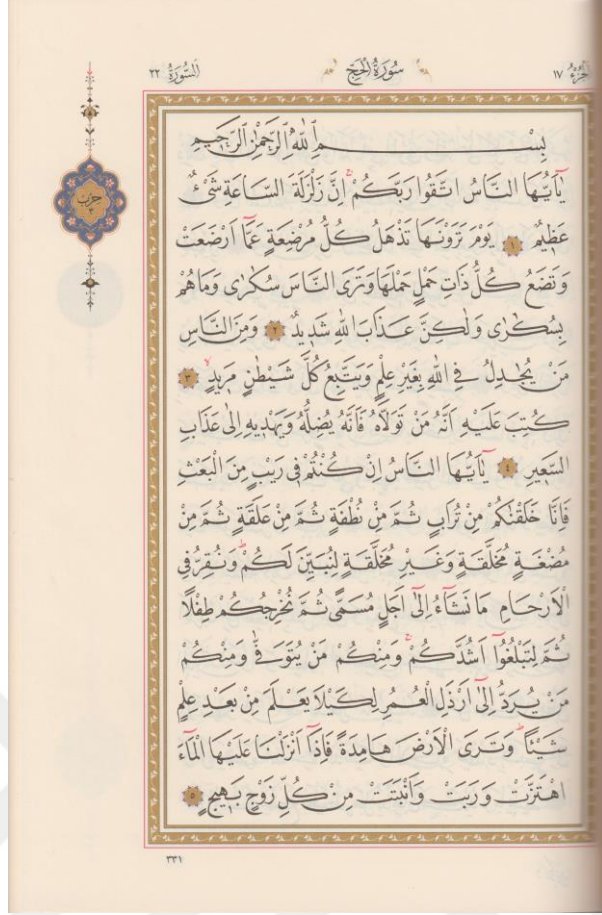 الجزء ١٧
سُورَةُ الْحَجِّ
السُّورَةُ ٢٢
حزب
٣
بِسْمِ اللّٰهِ الرَّحْمٰنِ الرَّحٖيمِ
يَٓا اَيُّهَا النَّاسُ اتَّقُوا رَبَّكُمْۚ اِنَّ زَلْزَلَةَ السَّاعَةِ شَيْءٌ
عَظٖيمٌ ١ يَوْمَ تَرَوْنَهَا تَذْهَلُ كُلُّ مُرْضِعَةٍ عَمَّٓا اَرْضَعَتْ
وَتَضَعُ كُلُّ ذَاتِ حَمْلٍ حَمْلَهَا وَتَرَى النَّاسَ سُكَارٰى وَمَا هُمْ
بِسُكَارٰى وَلٰكِنَّ عَذَابَ اللّٰهِ شَدٖيدٌ ٢ وَمِنَ النَّاسِ
مَنْ يُجَادِلُ فِي اللّٰهِ بِغَيْرِ عِلْمٍ وَيَتَّبِعُ كُلَّ شَيْطَانٍ مَرٖيدٍۙ ٣
كُتِبَ عَلَيْهِ اَنَّهُ مَنْ تَوَلَّاهُ فَاَنَّهُ يُضِلُّهُ وَيَهْدٖيهِ اِلٰى عَذَابِ
السَّعٖيرِ ٤ يَٓا اَيُّهَا النَّاسُ اِنْ كُنْتُمْ فٖي رَيْبٍ مِنَ الْبَعْثِ
فَاِنَّا خَلَقْنَاكُمْ مِنْ تُرَابٍ ثُمَّ مِنْ نُطْفَةٍ ثُمَّ مِنْ عَلَقَةٍ ثُمَّ مِنْ
مُضْغَةٍ مُخَلَّقَةٍ وَغَيْرِ مُخَلَّقَةٍ لِنُبَيِّنَ لَكُمْۜ وَنُقِرُّ فِي
الْاَرْحَامِ مَا نَشَٓاءُ اِلٰٓى اَجَلٍ مُسَمًّى ثُمَّ نُخْرِجُكُمْ طِفْلًا
ثُمَّ لِتَبْلُغُٓوا اَشُدَّكُمْۚ وَمِنْكُمْ مَنْ يُتَوَفّٰى وَمِنْكُمْ
مَنْ يُرَدُّ اِلٰٓى اَرْذَلِ الْعُمُرِ لِكَيْلَا يَعْلَمَ مِنْ بَعْدِ عِلْمٍ
شَيْـًٔاۜ وَتَرَى الْاَرْضَ هَامِدَةً فَاِذَٓا اَنْزَلْنَا عَلَيْهَا الْمَٓاءَ
اهْتَزَّتْ وَرَبَتْ وَاَنْبَتَتْ مِنْ كُلِّ زَوْجٍ بَهٖيجٍ ٥
٣٣١